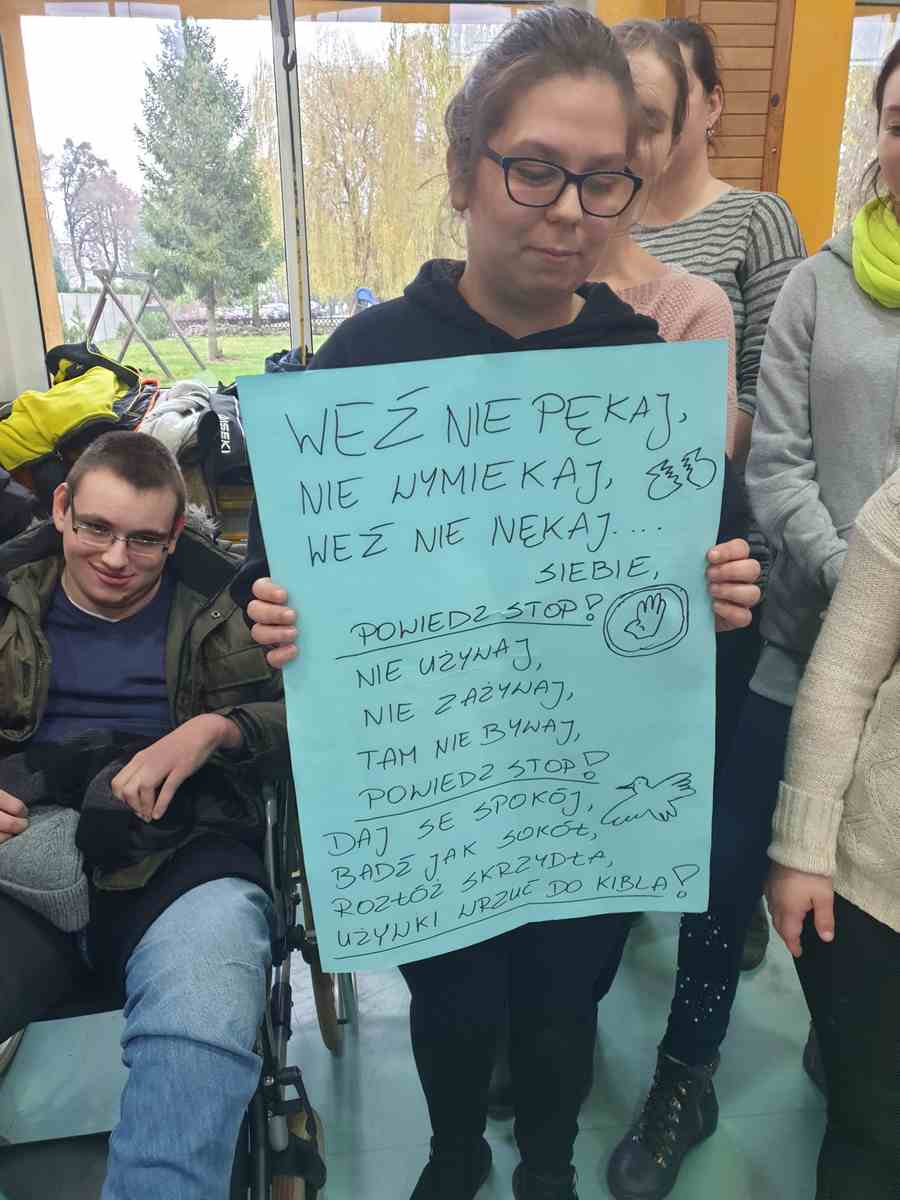 WEŹ NIE PĘKAJ,
NIE WYMIEKAJ,
WEŹ NIE NĘKAJ....
SIEBIE,
POWIEDZ STOP!
NIE UŻYWAJ,
NIE ZAŻYWAJ,
TAM NIE BYWAJ,
POWIEDZ STOP!
DAJ SE SPOKÓJ,
BĄDŹ JAK SOKÓŁ,
ROZŁÓŻ SKRZYDŁA,
UŻYWKI WRZUĆ DO KIBLA!